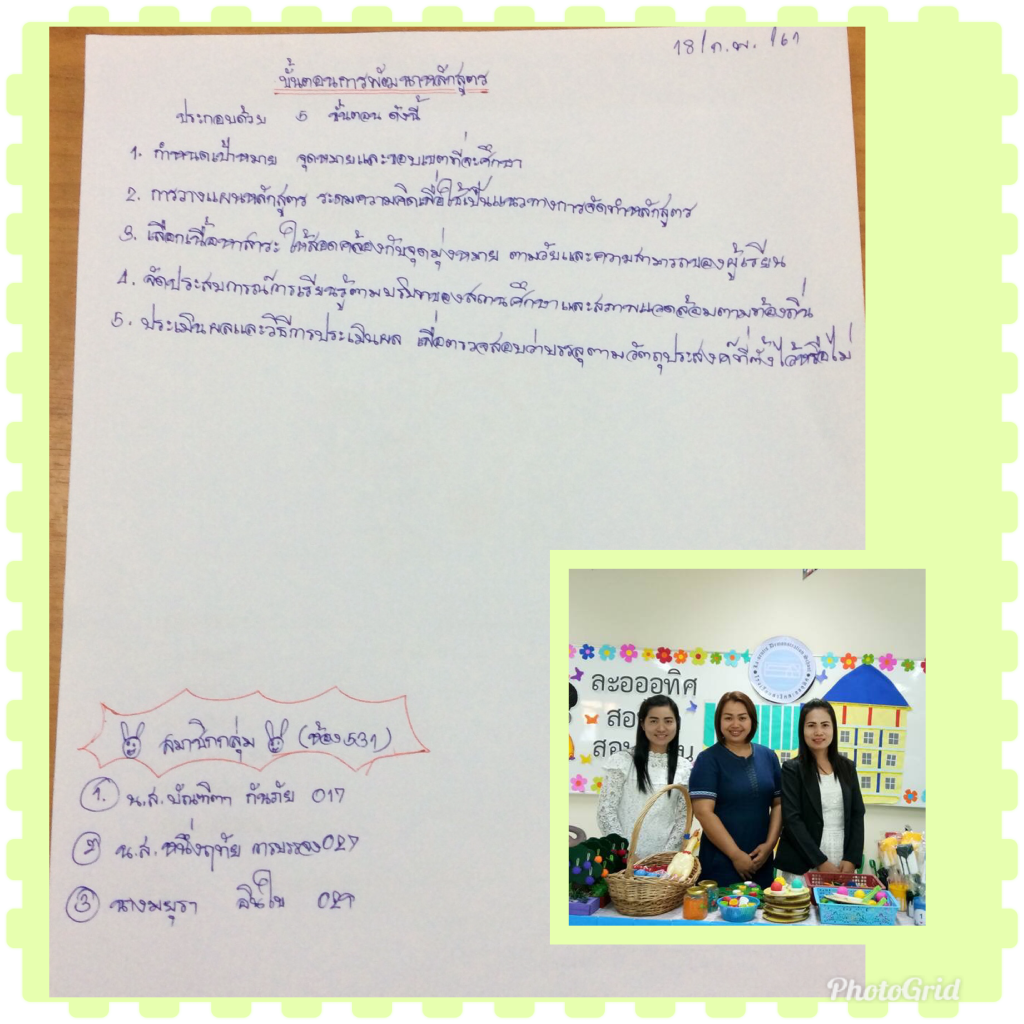 18/ก.พ./61
ขั้นตอนการพัฒนาหลักสูตร
ประกอบด้วย 5 ขั้นตอน ดังนี้
1. กำหนดเป้าหมาย จุดหมายและขอบเขตที่จะศึกษา
2. การวางแผนหลักสูตร ระดมความคิดเพื่อใช้เป็นแนวทางการจัดทำหลักสูตร
3. เลือกเนื้อหาสาระ ให้สอดคล้องกับจุดมุ่งหมาย ตามวัยและความสามารถของผู้เรียน
4. จัดประสบการณ์การเรียนรู้ตามบริบทของสถานศึกษาและสภาพแวดล้อมตามท้องถิ่น
5. ประเมินผลและวิธีการประเมินผล เพื่อตรวจสอบว่าบรรลุตามวัตถุประสงค์ที่ตั้งไว้หรือไม่
สมาชิกกลุ่ม (ห้อง 531)
1. น.ส. บัณฑิตา กันภัย 017
2 น.ส. หนึ่งฤทัย 027
3 นางมยุรา อินใข
ละอออุทิศ
PhotoGrid